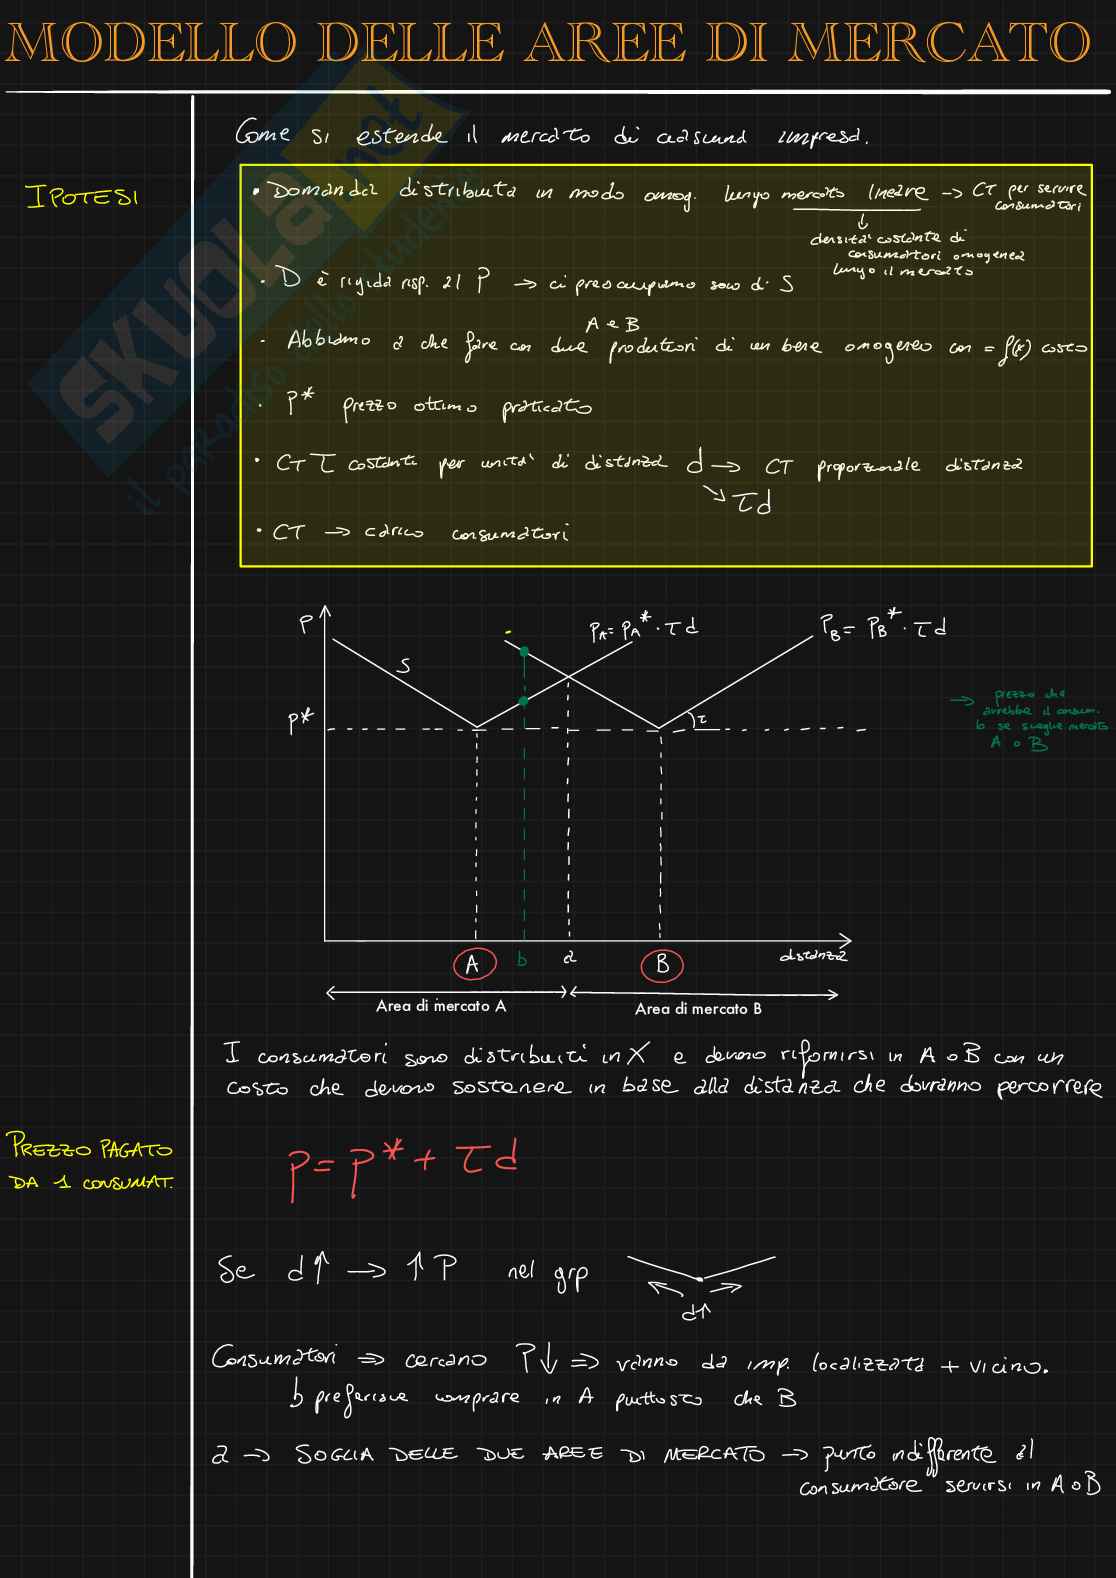 MODELLO DELLE AREE DI MERCATO
Come si estende il mercato di ciascuna impresa.
IPOTESI
• Domanda distribuita in modo omog. lungo mercato lineare → CT per servire
consumatori
↓
densità costante di
consumatori omogenea
lungo il mercato
• D è rigida risp. al P → ci preoccupiamo solo di S
A e B
• Abbiamo a che fare con due produttori di un bene omogeneo con = f(t) costo
• P* prezzo ottimo praticato
• CT τ costante per unità di distanza d → CT proporzionale distanza
↘ τd
• CT → carico consumatori
P
S
PA = PA* · τd
PB = PB* · τd
P*
τ
→ prezzo che
avrebbe il consum.
b se sceglie mercato
A o B
A
b
a
B
distanza
Area di mercato A
Area di mercato B
I consumatori sono distribuiti in X e devono rifornirsi in A o B con un
costo che devono sostenere in base alla distanza che dovranno percorrere
PREZZO PAGATO
DA 1 CONSUMAT.
P = P* + τd
Se d↑ → ↑P nel grp
d↑
Consumatori ⇒ cercano P↓ ⇒ vanno da imp. localizzata + vicino.
b preferisce comprare in A piuttosto che B
a → SOGLIA DELLE DUE AREE DI MERCATO → punto indifferente al
consumatore servirsi in A o B
SKUOLA.net